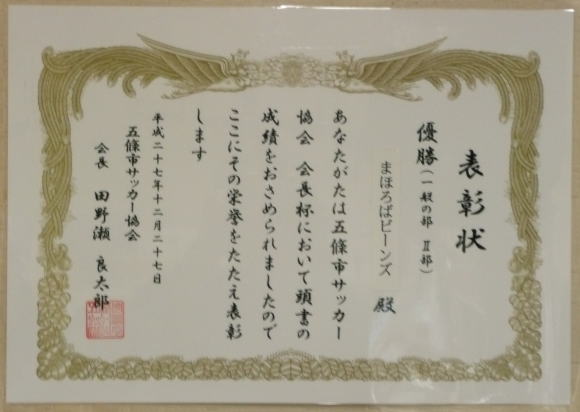 表彰状
優勝(一般の部 Ⅱ部)
まほろばビーンズ 殿
あなたがたは五條市サッカー
協会 会長杯において頭書の
成績をおさめられましたので
ここにその栄誉をたたえ表彰
します
平成二十七年十二月二十七日
五條市サッカー協会
会長 田野瀬 良太郎